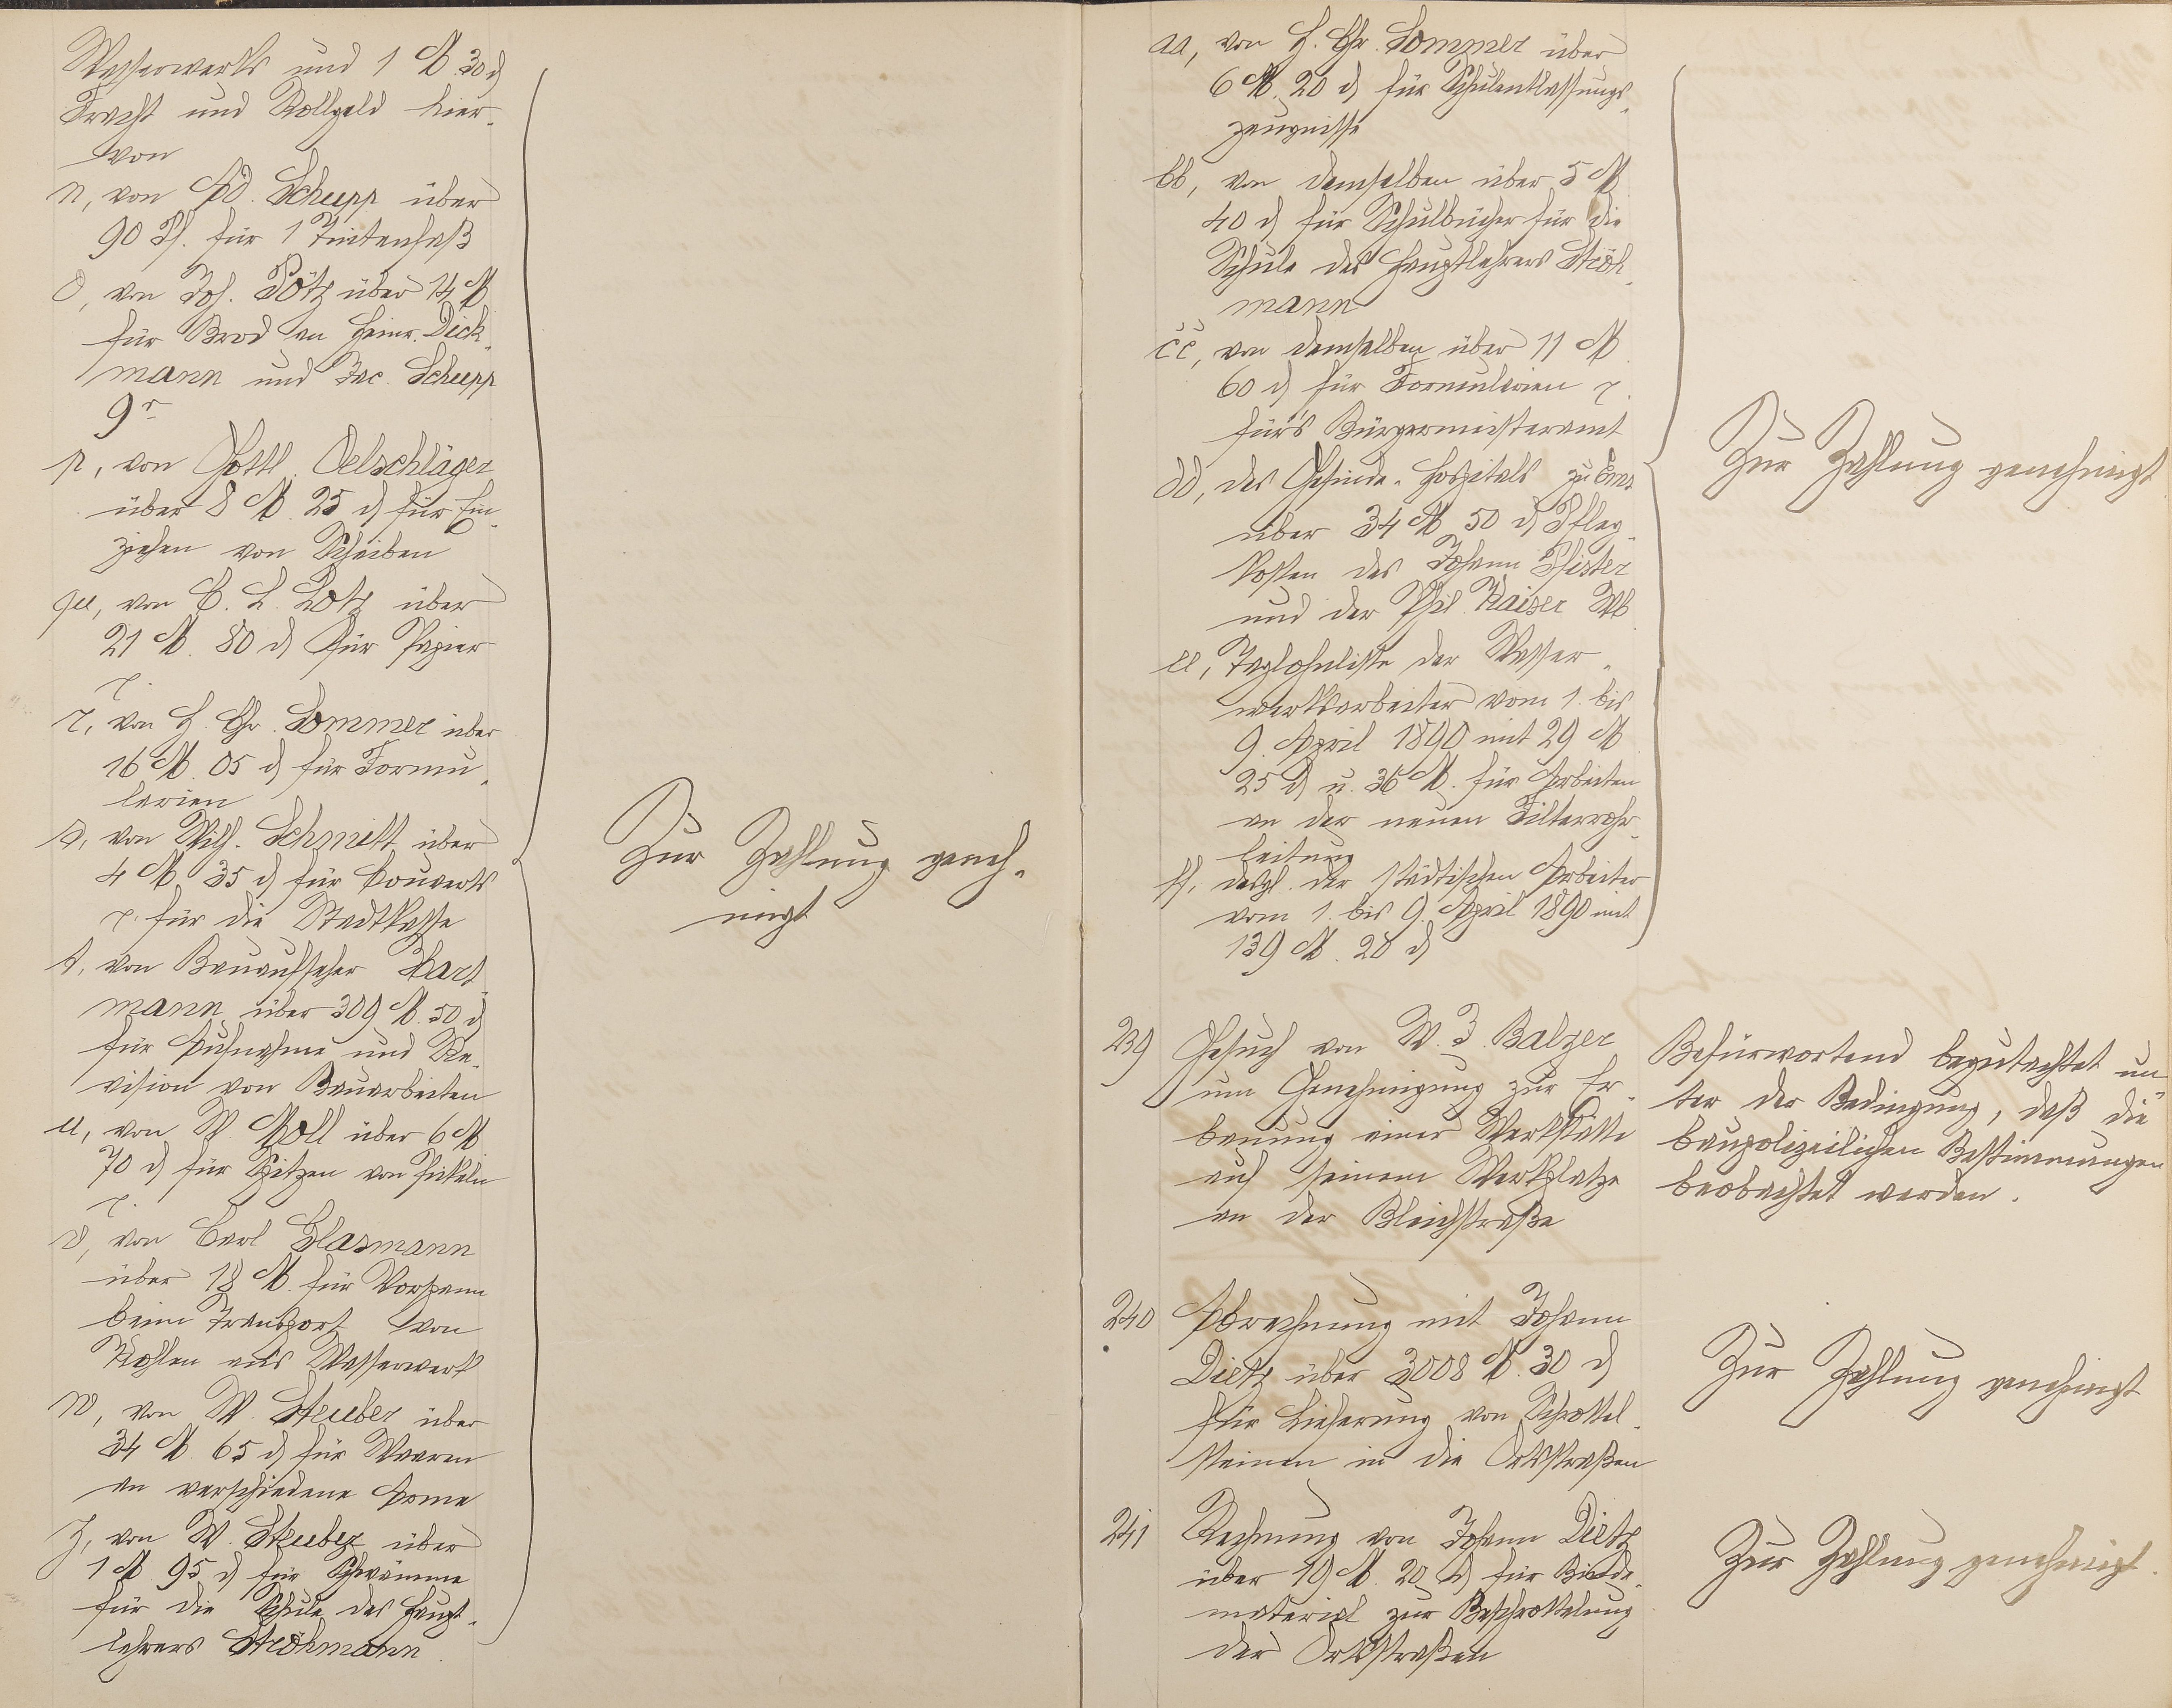 Wasserwerks und 1 M. 30 d
Fracht und Rollgeld hier-
von
n, von Ad. Schupp über
90 Pf. für 1 Tintenfaß
o, von Jos. Pötz über 14 M
für Brod an Heinr. Dick-
mann und Jac. Schupp
9r
p, von Gottl. Oelschläger
über 8 M. 25 d für Ein-
ziehen von Scheiben
qu, von C. L. Lotz über
21 M. 80 d für Papier
r.
r, von H. Chr. Sommer über
16 M. 05 d für Formu-
larien
s, von Wilh. Schmitt über
4 M. 35 d für Couverts
r. für die Stadtkasse
t, von Bauaufseher Hart-
mann über 309 M. 50 d
für Aufnahme und Re-
vision von Bauarbeiten
u, von W. Noll über 6 M
70 d für Spitzen von Pickeln
r.
v, von Carl Glasmann
über 18 M. für Vorspann
beim Transport von
Kohlen ins Wasserwerk
w, von W. Steuber über
34 M. 65 d für Waaren
an verschiedene Arme
z, von W. Steuber über
1 M. 95 d für Schwämme
für die Schule des Haupt-
lehrers Ströhmann
Zur Zahlung geneh-
migt
aa, von H. Chr. Sommer über
6 M. 20 d für Schulentlassungs-
zeugnisse
bb, von demselben über 5 M
40 d für Schulbücher für die
Schule des Hauptlehrers Ströh-
mann
cc, von demselben über 11 M.
60 d für Formularien r.
für's Bürgermeisteramt
dd, des Gesinde-Hospitals zu Ems
über 34 M. 50 d Pfleg-
kosten des Johann Pfister
und der Phil. Kaiser Wb.
ee, Taglohnliste der Wasser-
werksarbeiter vom 1. bis
9. April 1890 mit 29 M
25 d u. 36 M. für Arbeiten
an der neuen Filterrohr-
leitung
ff, desgl. der städtischen Arbeiter
vom 1. bis 9. April 1890 mit
139 M. 20 d
Zur Zahlung genehmigt
239 Gesuch von W. J. Balzer
um Genehmigung zur Er-
bauung einer Werkstätte
auf seinem Werkplatze
an der Bleichstraße
Befürwortend begutachtet un-
ter der Bedingung, daß die
baupolizeilichen Bestimmungen
beobachtet werden.
240 Abrechnung mit Johann
Dietz über 3008 M. 30 d
für Lieferung von Schrottel-
steinen in die Ortsstraßen
Zur Zahlung genehmigt
241 Rechnung von Johann Dietz
über 19 M. 20 d für Binde-
material zur Beschrottelung
der Ortsstraßen
Zur Zahlung genehmigt.